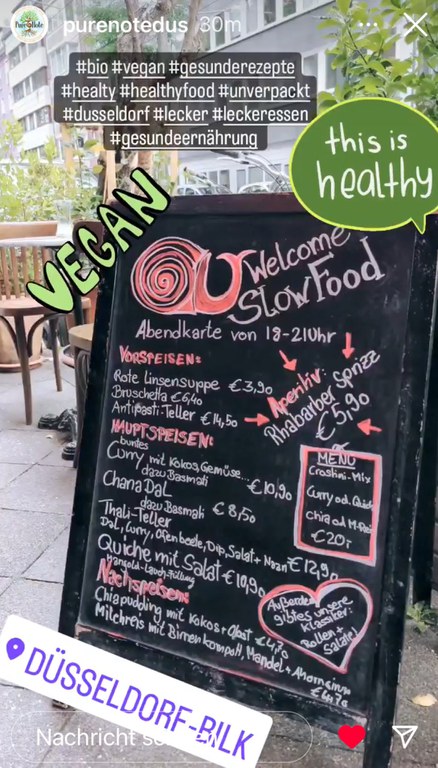 purenotedus 30m
#bio #vegan #gesunderezepte
#healty #healthyfood #unverpackt
#dusseldorf #lecker #leckeressen
#gesundeernährung
this is
healthy
VEGAN
Welcome
SlowFood
Abendkarte von 18-21Uhr
VORSPEISEN:
Rote Linsensuppe €3,90
Bruschetta €6,40
Antipasti-Teller €14,50
Aperitiv:
Rhabarber Sprizz
€5,90
HAUPTSPEISEN:
buntes
Curry mit Kokos, Gemüse...
dazu Basmati €10,90
Chana Dal
dazu Basmati €8,50
Thali-Teller
Dal, Curry, Ofenbeete, Dip, Salat + Naan €12,90
Quiche mit Salat €10,90
Mangold-Lauch-Füllung
MENÜ
Crostini-Mix
Curry od. Quiche
Chia od.
€20,-
Nachspeisen:
Chiapudding mit Kokos + Obst €4,70
Milchreis mit Birnenkompott, Mandel + Ahornsirup
€4,70
Außerdem
gibt es unsere
Klassiker:
Rollen +
Salate!
DÜSSELDORF-BILK
Nachricht